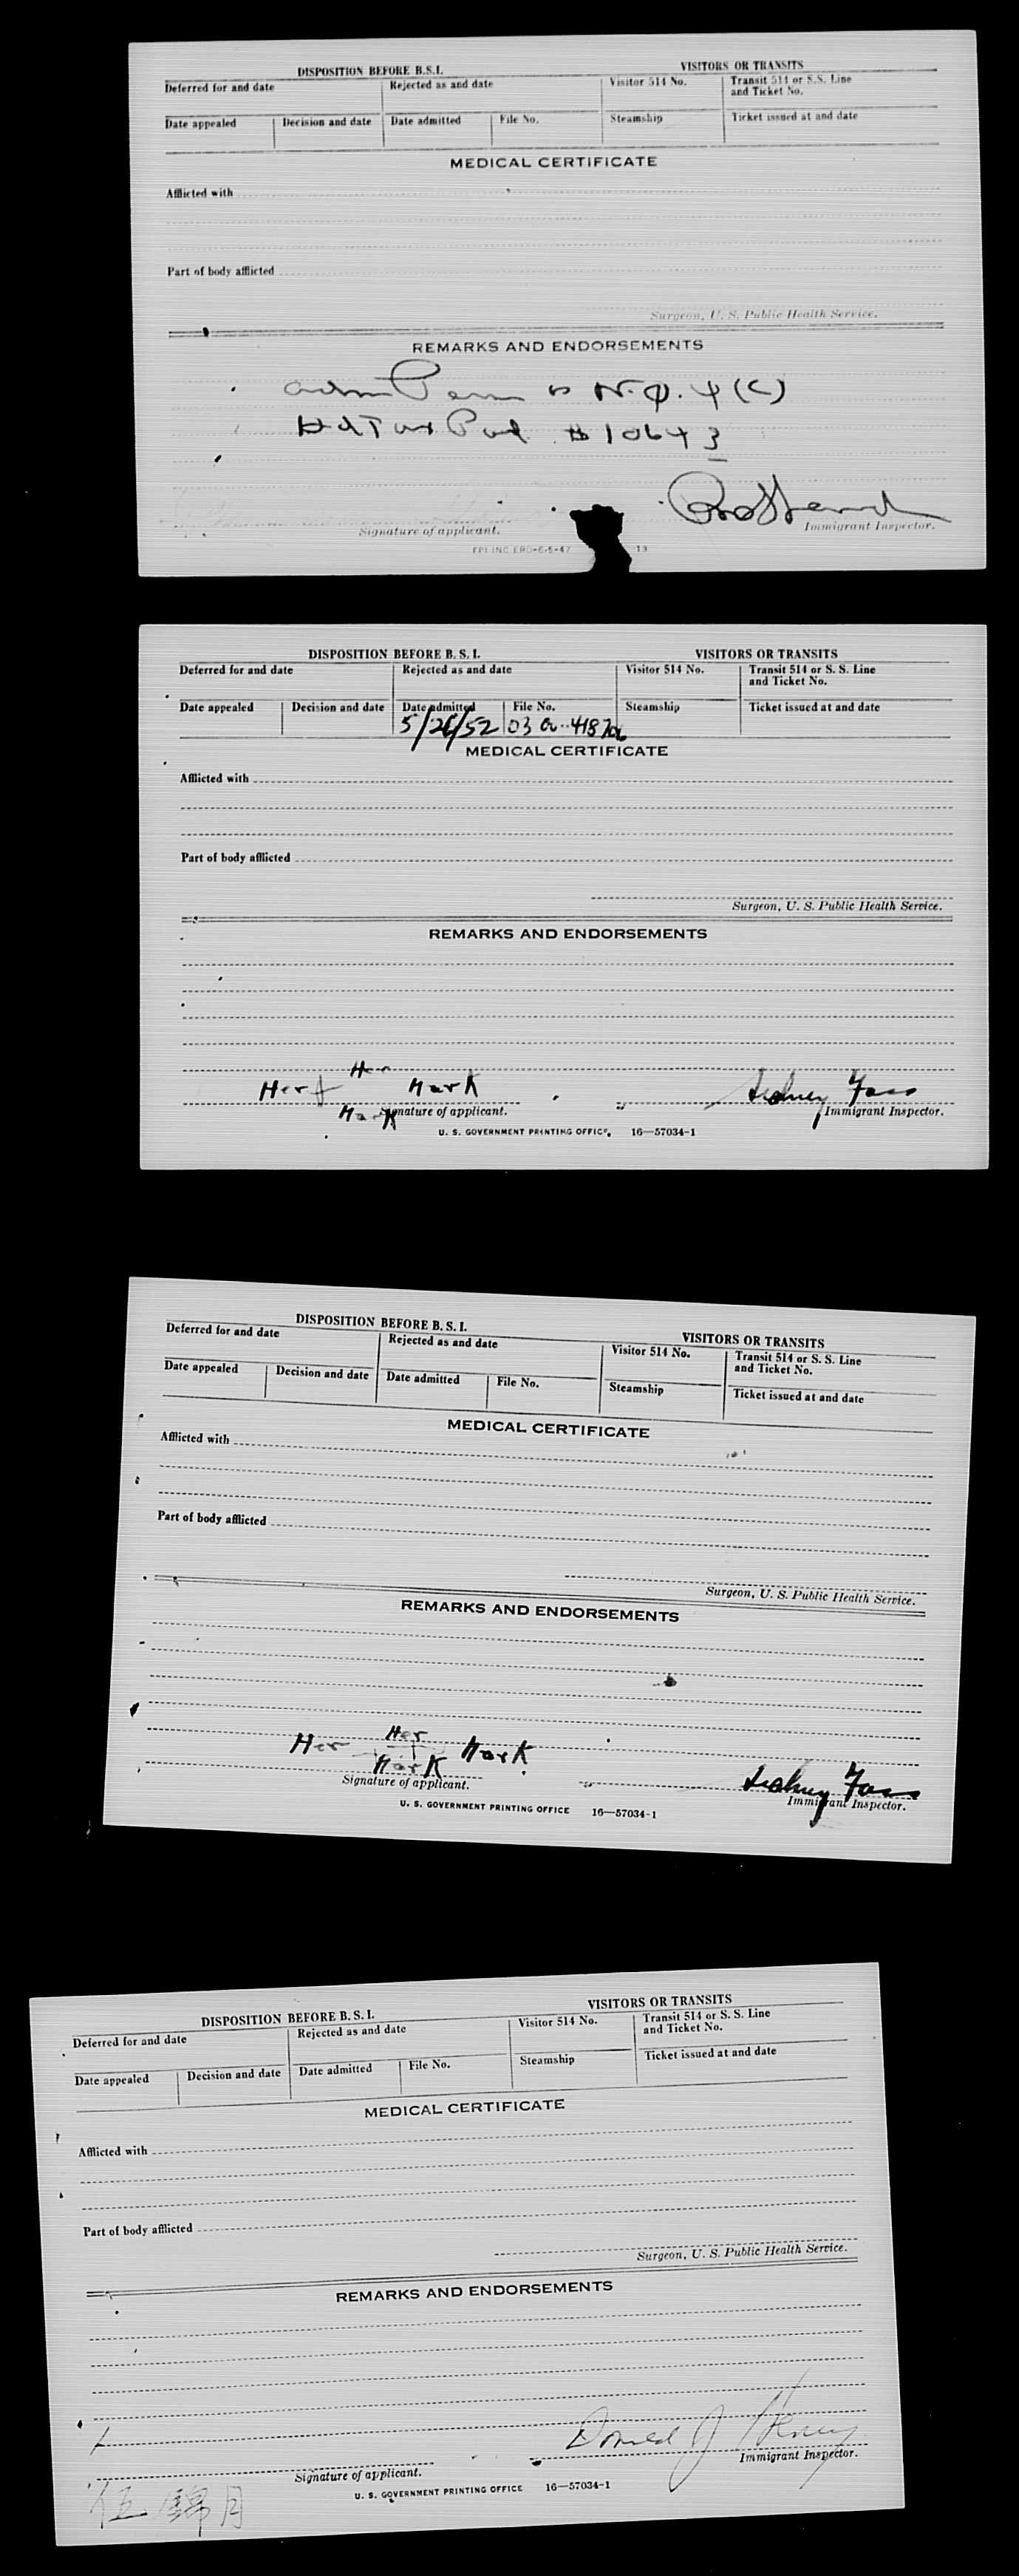 DISPOSITION BEFORE B.S.I.
VISITORS OR TRANSITS
Deferred for and date
Rejected as and date
Visitor 514 No.
Transit 514 or S.S. Line
and Ticket No.
Date appealed
Decision and date
Date admitted
File No.
Steamship
Ticket issued at and date
MEDICAL CERTIFICATE
Afflicted with
Part of body afflicted
Surgeon, U. S. Public Health Service.
REMARKS AND ENDORSEMENTS
adm Perm N.Q. 4 (C)
Hd Tax Pd #10643
Signature of applicant.
Immigrant Inspector.
FPI INC ERO-6-5-47
13
DISPOSITION BEFORE B. S. I.
VISITORS OR TRANSITS
Deferred for and date
Rejected as and date
Visitor 514 No.
Transit 514 or S. S. Line
and Ticket No.
Date appealed
Decision and date
Date admitted
File No.
Steamship
Ticket issued at and date
5/26/52
MEDICAL CERTIFICATE
Afflicted with
Part of body afflicted
Surgeon, U. S. Public Health Service.
REMARKS AND ENDORSEMENTS
Her
Her Mark
Mark
Sidney Fass
Signature of applicant.
Immigrant Inspector.
U. S. GOVERNMENT PRINTING OFFICE 16—57034-1
DISPOSITION BEFORE B. S. I.
VISITORS OR TRANSITS
Deferred for and date
Rejected as and date
Visitor 514 No.
Transit 514 or S. S. Line
and Ticket No.
Date appealed
Decision and date
Date admitted
File No.
Steamship
Ticket issued at and date
MEDICAL CERTIFICATE
Afflicted with
Part of body afflicted
Surgeon, U. S. Public Health Service.
REMARKS AND ENDORSEMENTS
Her
Her Mark
Mark
Sidney Fass
Signature of applicant.
Immigrant Inspector.
U. S. GOVERNMENT PRINTING OFFICE 16—57034-1
DISPOSITION BEFORE B. S. I.
VISITORS OR TRANSITS
Deferred for and date
Rejected as and date
Visitor 514 No.
Transit 514 or S. S. Line
and Ticket No.
Date appealed
Decision and date
Date admitted
File No.
Steamship
Ticket issued at and date
MEDICAL CERTIFICATE
Afflicted with
Part of body afflicted
Surgeon, U. S. Public Health Service.
REMARKS AND ENDORSEMENTS
Donald J Henry
Signature of applicant.
Immigrant Inspector.
U. S. GOVERNMENT PRINTING OFFICE 16—57034-1
伍錦月